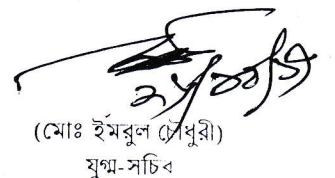 (মোঃ ইমরুল চৌধুরী)
যুগ্ম-সচিব